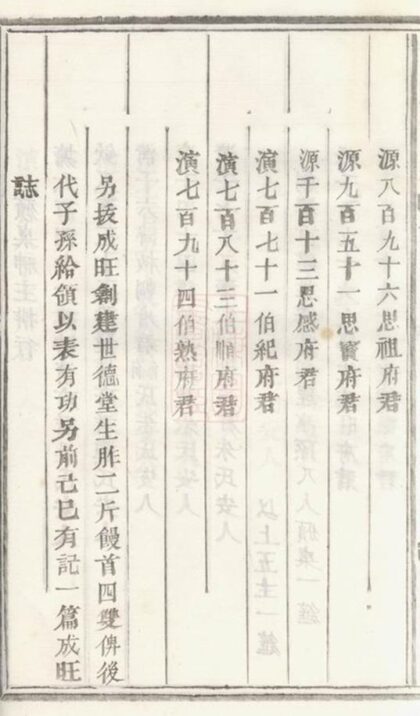 源八百九十六思祖府君
源九百五十一思寶府君
源千百十三思感府君
演七百七十一伯紀府君
演七百八十三伯順府君
演七百九十四伯熟府君
另拔成旺剏建世德堂生胙二斤饅首四雙俾後
代子孫給領以表有功另前己巳有記一篇成旺
誌